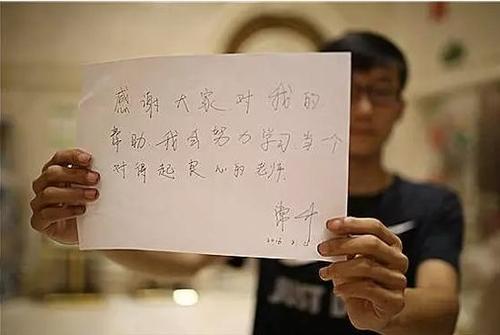 感谢大家对我的
帮助.我会努力学习.当一个
对得起良心的老师.
JUST D